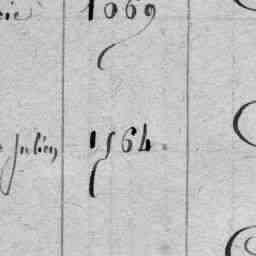 1069
Julien 1564.